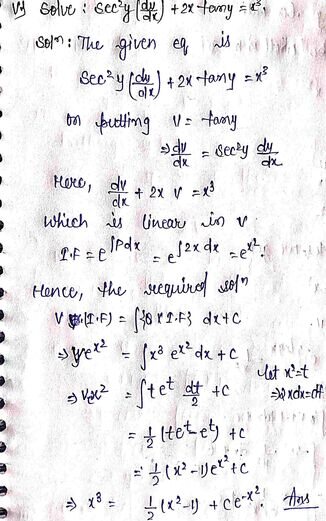 V) Solve: sec²y (dy/dx) + 2x tany = x³.
Solⁿ: The given eq is
sec²y (dy/dx) + 2x tany = x³
on putting V = tany
⇒ dv/dx = sec²y dy/dx
Here, dv/dx + 2x v = x³
which is linear in v
I.F = e^∫Pdx = e^∫2x dx = e^x².
Hence, the required solⁿ
V (I.F) = ∫{Q x I.F} dx + C
⇒ Ve^x² = ∫x³ e^x² dx + C
let x² = t
⇒ Vex² = ∫te^t dt/2 + C ⇒ 2xdx = dt
= 1/2 (te^t - e^t) + C
= 1/2 (x² - 1)e^x² + C
⇒ x³ = 1/2 (x² - 1) + Ce^-x². Ans